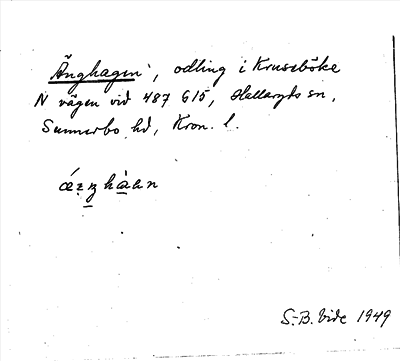 Änghagen, odling i Kruseböke
N vägen vid 487 615, Hallaryds sn,
Sunnerbo hd, Kron. l.
S.-B. Vide 1949